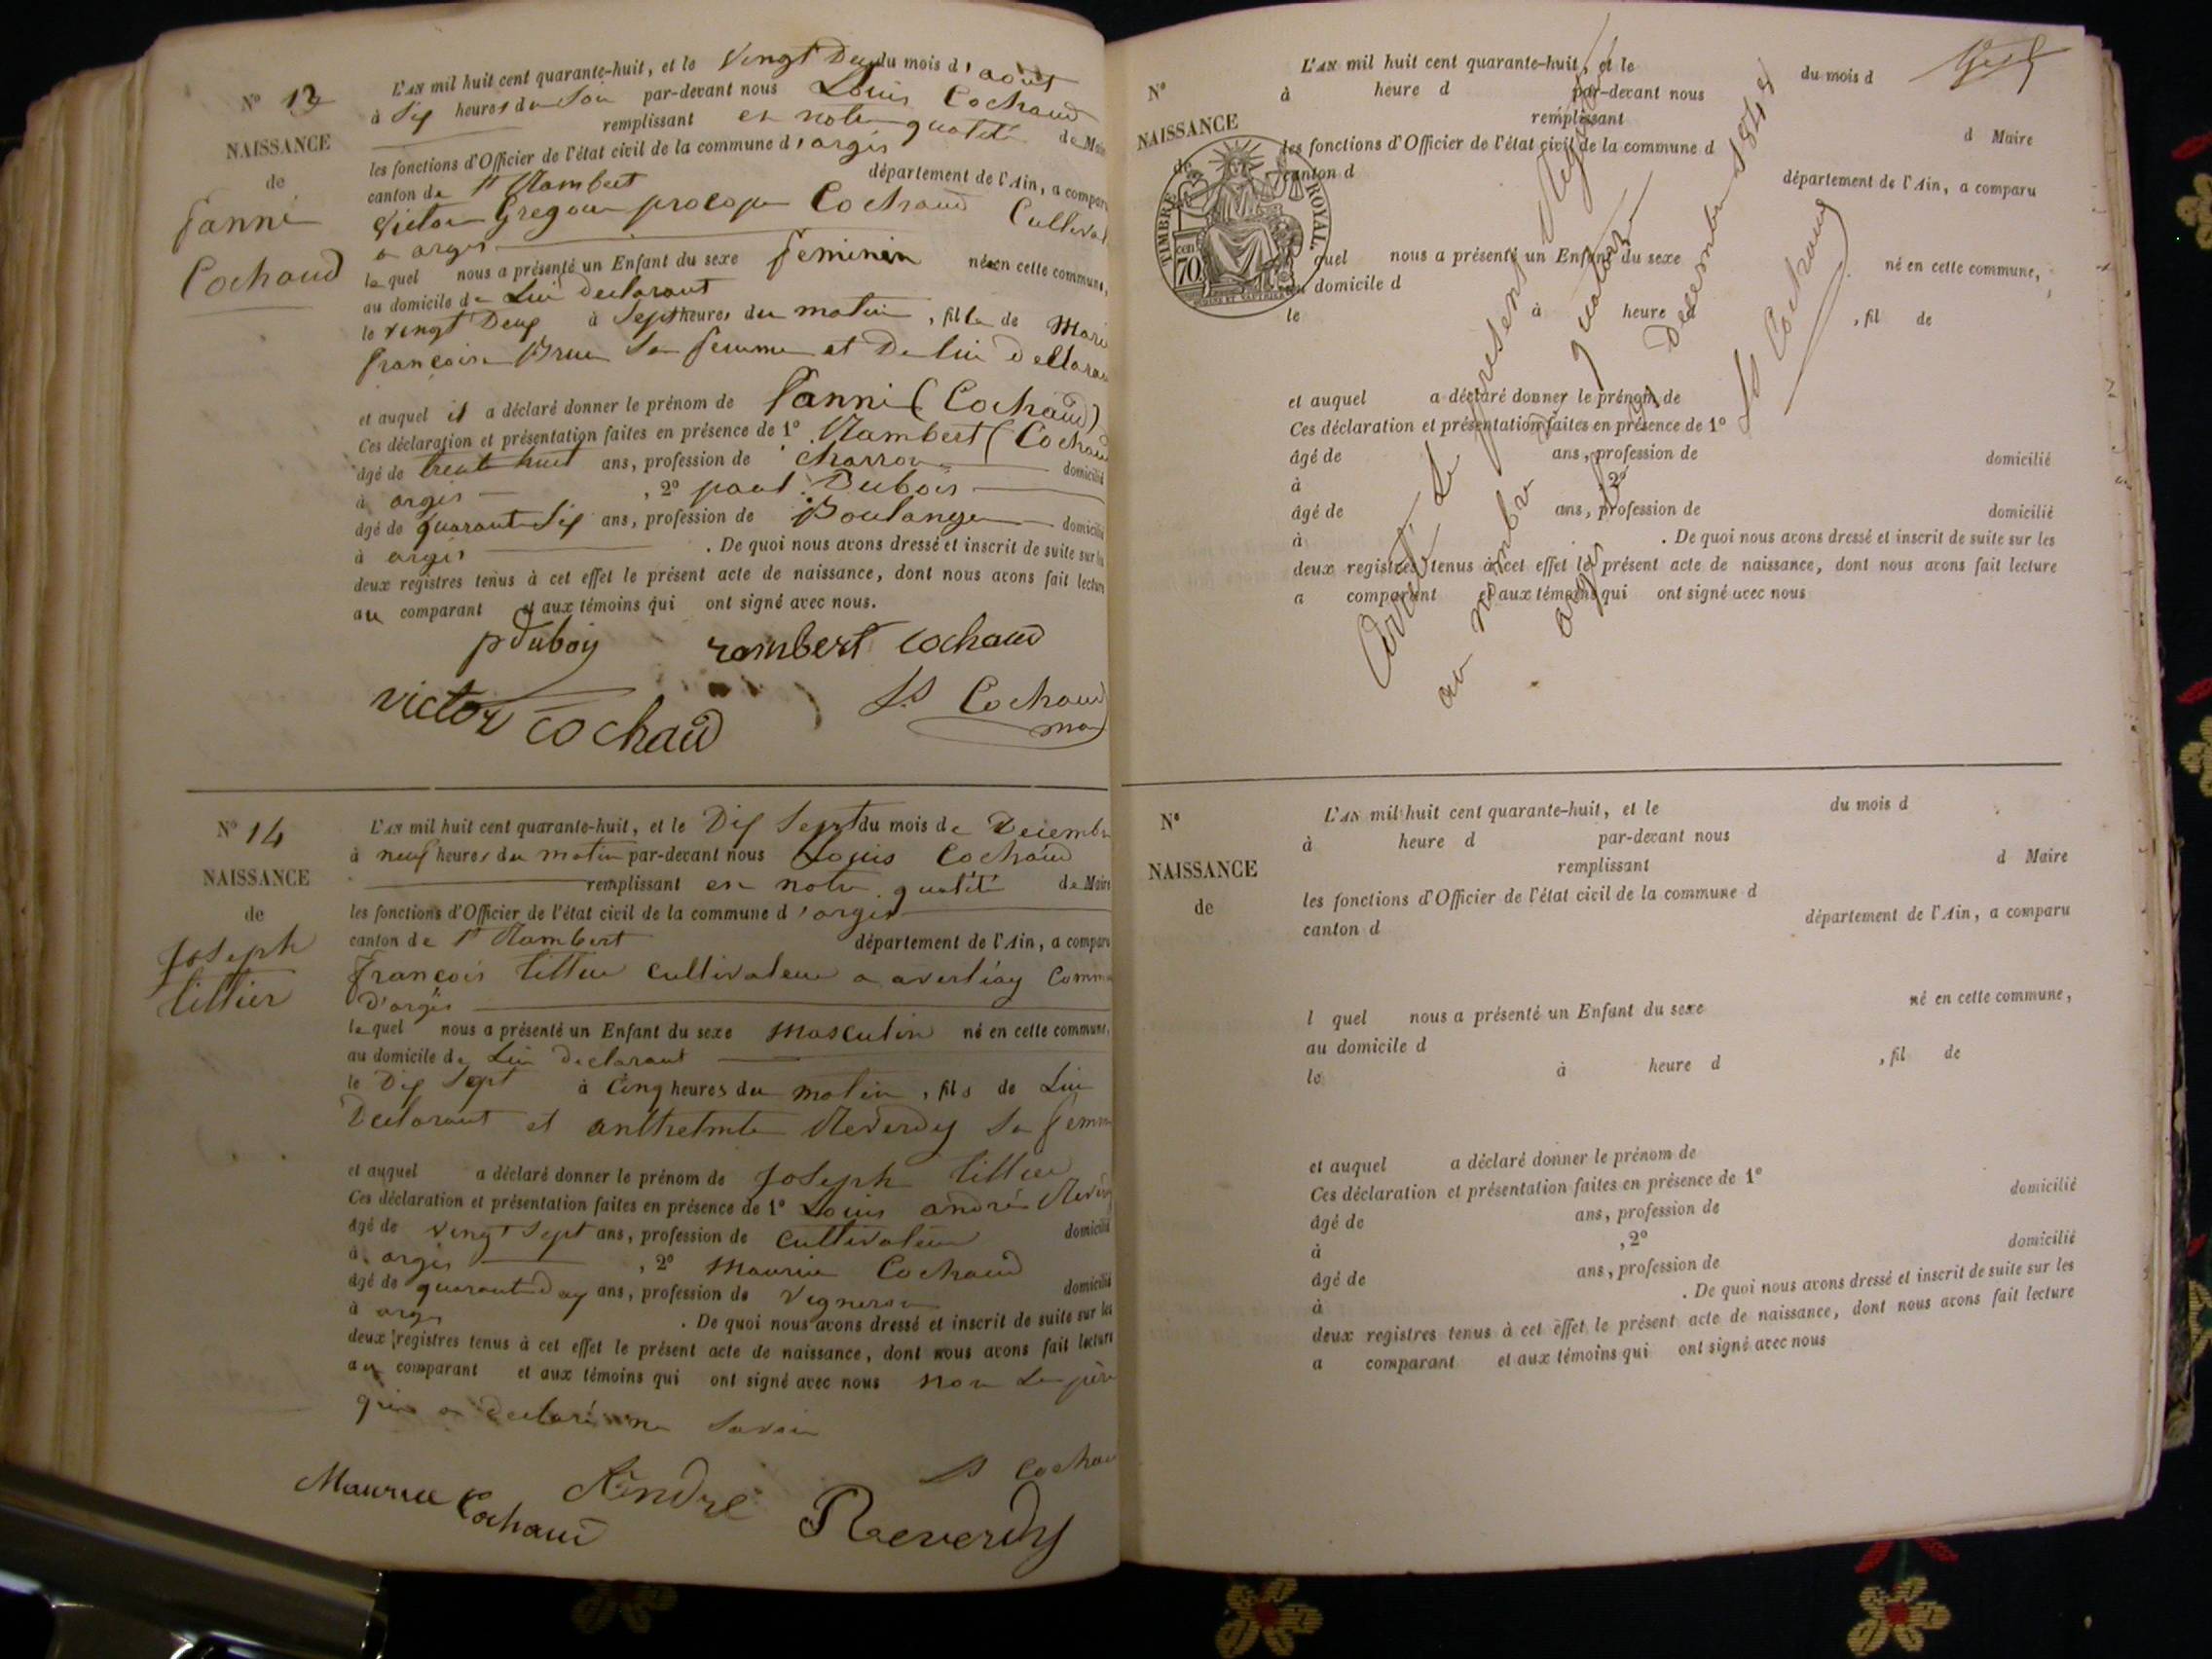 N° 13
NAISSANCE
de
fanni
Cochaud
L'AN mil huit cent quarante-huit, et le Vingt Deux du mois d'août
à Six heures du Soir par-devant nous Louis Cochaud
remplissant en notre qualité de Maire
les fonctions d'Officier de l'état civil de la commune d'argis
canton de St Rambert département de l'Ain, a comparu
Victor Gregoire procope Cochaud Cultivat
a argis
lequel nous a présenté un Enfant du sexe feminin née en cette commune,
au domicile de Lui declarant
le vingt Deux à Sept heures du matin, fille de Marie
françoise Brun Sa femme et De lui declaran
et auquel il a déclaré donner le prénom de fanni (Cochaud)
Ces déclaration et présentation faites en présence de 1° Rambert (Cochaud
âgé de trente huit ans, profession de charron domicilié
à argis , 2° paul Dubois
âgé de quarante Six ans, profession de Boulanger domicilié
à argis . De quoi nous avons dressé et inscrit de suite sur les
deux registres tenus à cet effet le présent acte de naissance, dont nous avons fait lecture
au comparant et aux témoins qui ont signé avec nous.
pDubois rambert cochaud
victor cochaud Ls Cochaud
N° 14
NAISSANCE
de
Joseph
tillier
L'AN mil huit cent quarante-huit, et le Dix Sept du mois de Decembre
à neuf heures du matin par-devant nous Louis Cochaud
remplissant en notre qualité de Maire
les fonctions d'Officier de l'état civil de la commune d'argis
canton de St Rambert département de l'Ain, a comparu
François tillier cultivateur a averliay Comm
D'argis
lequel nous a présenté un Enfant du sexe Masculin né en cette commune,
au domicile de Lui declarant
le Dix Sept à Cinq heures du matin, fils de Lui
Declarant et anthelmette Reverdy Sa femme
et auquel a déclaré donner le prénom de Joseph tillier
Ces déclaration et présentation faites en présence de 1° Louis andré Reverdy
âgé de vingt Sept ans, profession de Cultivateur domicilié
à argis , 2° Maurice Cochaud
âgé de quarante Deux ans, profession de Vigneron domicilié
à argis . De quoi nous avons dressé et inscrit de suite sur les
deux registres tenus à cet effet le présent acte de naissance, dont nous avons fait lecture
au comparant et aux témoins qui ont signé avec nous non Le père
qui a declaré ne Savoir
Ls Cochaud
Maurice Cochaud André Reverdy
N°
NAISSANCE
de
TIMBRE ROYAL
70 cen
L'AN mil huit cent quarante-huit, et le du mois d
à heure d par-devant nous
remplissant d Maire
les fonctions d'Officier de l'état civil de la commune d
canton d département de l'Ain, a comparu
l quel nous a présenté un Enfant du sexe né en cette commune,
au domicile d
le à heure d , fil de
et auquel a déclaré donner le prénom de
Ces déclaration et présentation faites en présence de 1°
âgé de ans, profession de domicilié
à , 2°
âgé de ans, profession de domicilié
à . De quoi nous avons dressé et inscrit de suite sur les
deux registres tenus à cet effet le présent acte de naissance, dont nous avons fait lecture
a comparant et aux témoins qui ont signé avec nous
Arrêté le present Registre
au nombre de quatorze
argis Decembre 1848
Ls Cochaud
N°
NAISSANCE
de
L'AN mil huit cent quarante-huit, et le du mois d
à heure d par-devant nous
remplissant d Maire
les fonctions d'Officier de l'état civil de la commune d
canton d département de l'Ain, a comparu
l quel nous a présenté un Enfant du sexe né en cette commune,
au domicile d
le à heure d , fil de
et auquel a déclaré donner le prénom de
Ces déclaration et présentation faites en présence de 1°
âgé de ans, profession de domicilié
à , 2°
âgé de ans, profession de domicilié
à . De quoi nous avons dressé et inscrit de suite sur les
deux registres tenus à cet effet le présent acte de naissance, dont nous avons fait lecture
a comparant et aux témoins qui ont signé avec nous